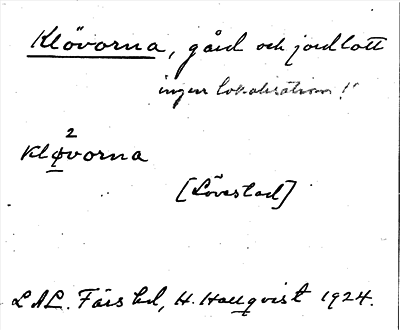 Klövorna, gård och jordlott
ingen lokalisation !!
2
Klǫvorna
[Lövestad]
LAL. Färs hd, H. Hallqvist 1924.